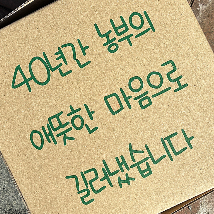 40년간 농부의
애뜻한 마음으로
길러냈습니다